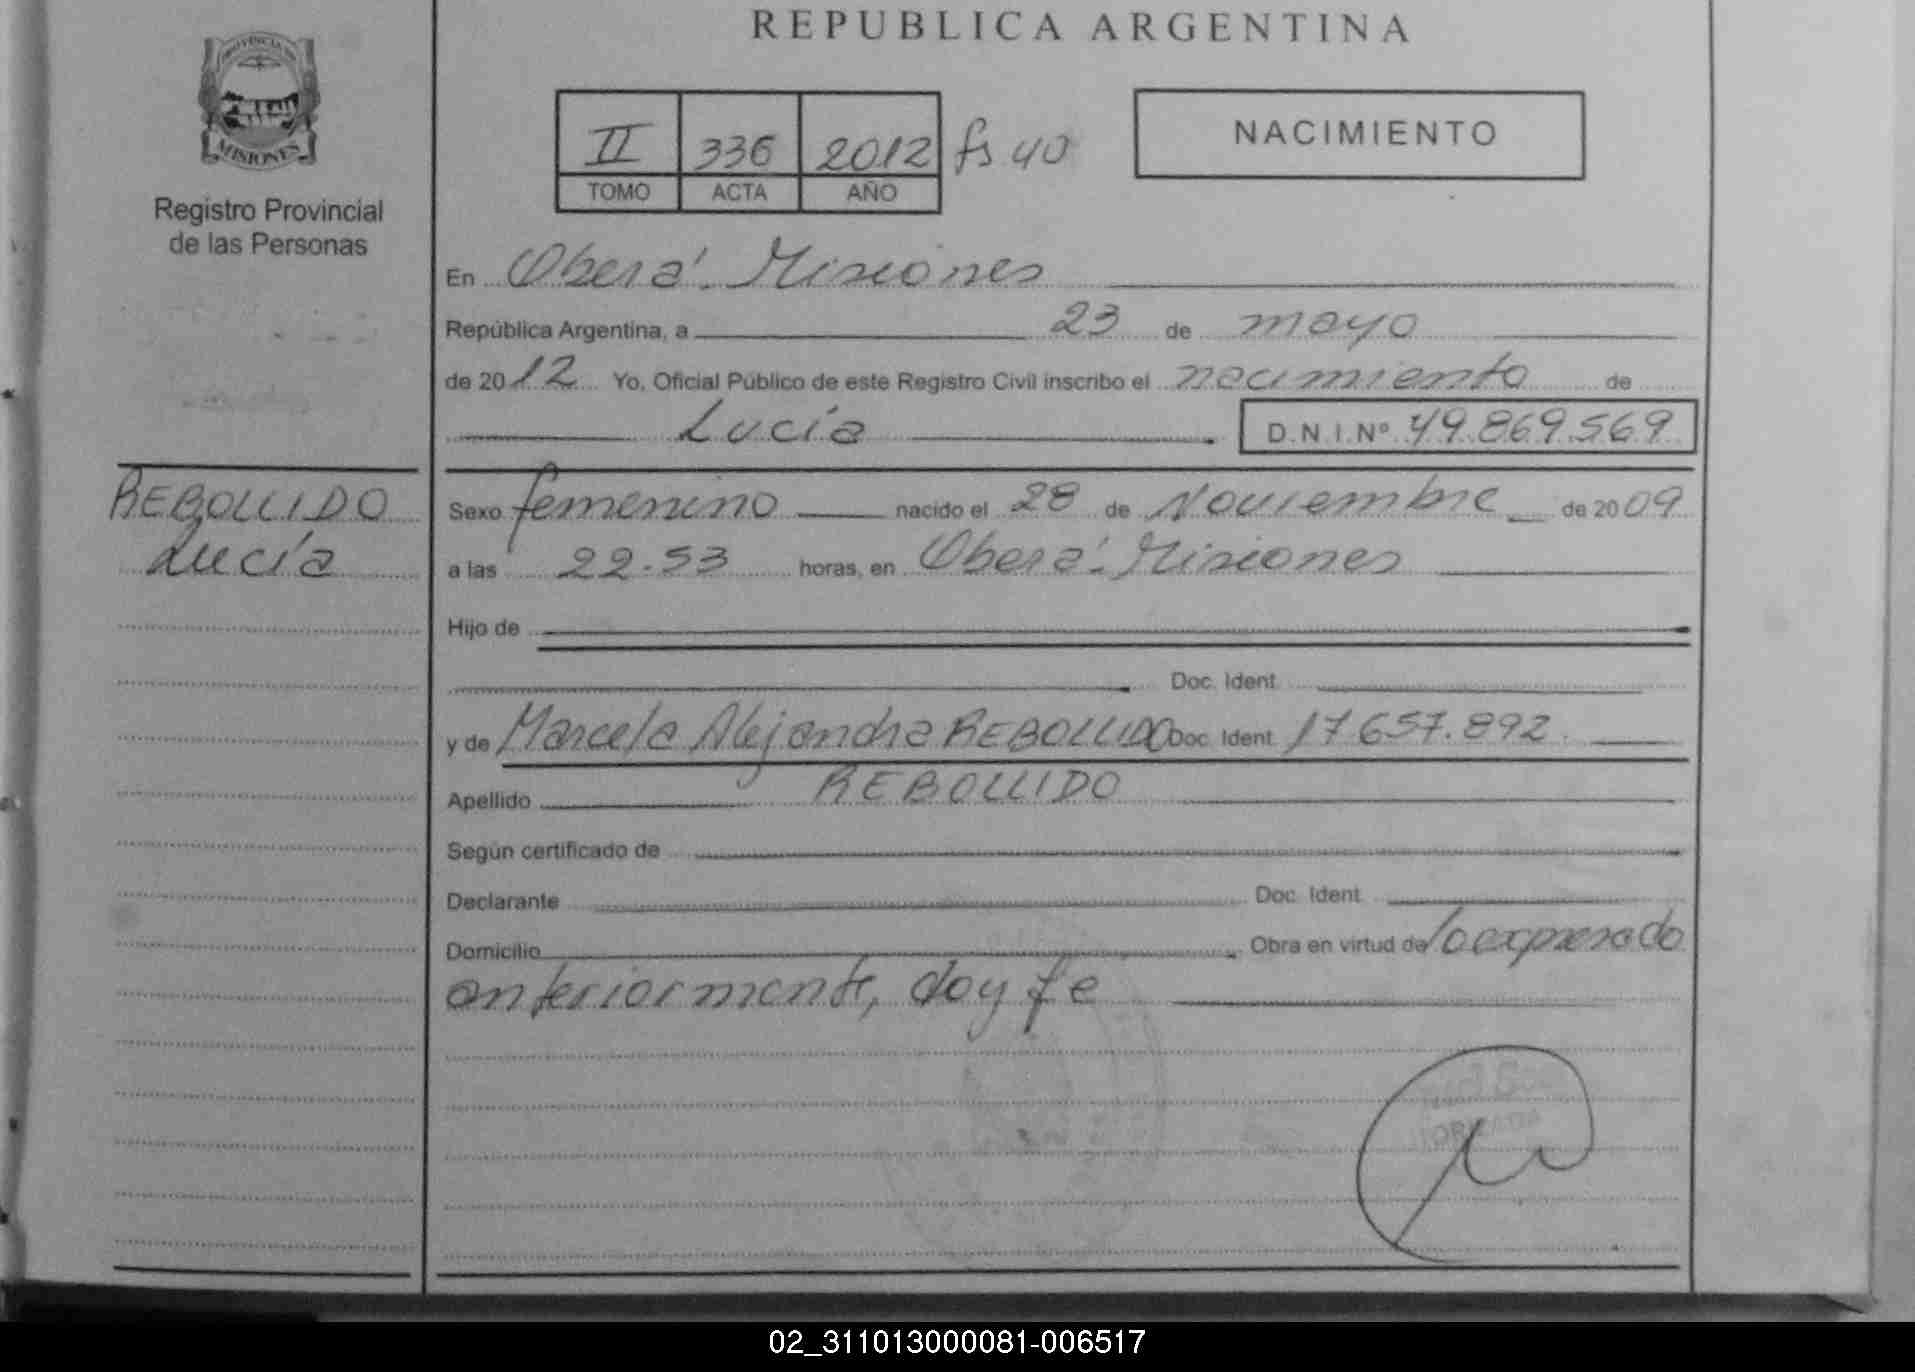 REPUBLICA ARGENTINA
PROVINCIA DE
MISIONES
Registro Provincial
de las Personas
II 336 2012 fs 40
TOMO ACTA AÑO
NACIMIENTO
En Oberá. Misiones
República Argentina, a 23 de mayo
de 2012 Yo, Oficial Público de este Registro Civil inscribo el nacimiento de
Lucía D.N.I.Nº 49.869.569
REBOLLIDO
Lucía
Sexo femenino nacido el 28 de Noviembre de 2009
a las 22.53 horas, en Oberá. Misiones
Hijo de
Doc. Ident.
y de Marcela Alejandra REBOLLIDO Doc. Ident. 17.657.892.
Apellido REBOLLIDO
Según certificado de
Declarante Doc. Ident.
Domicilio Obra en virtud de lo expresado
anteriormente, doy fe
02_311013000081-006517